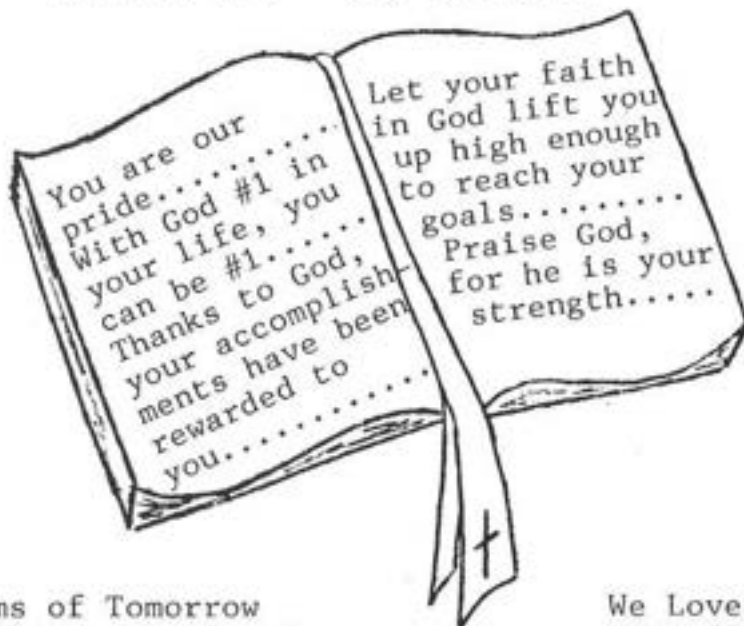 You are our
pride............
With God #1 in
your life, you
can be #1......
Thanks to God,
your accomplish-
ments have been
rewarded to
you.............
Let your faith
in God lift you
up high enough
to reach your
goals.........
Praise God,
for he is your
strength.....
of Tomorrow
We Love